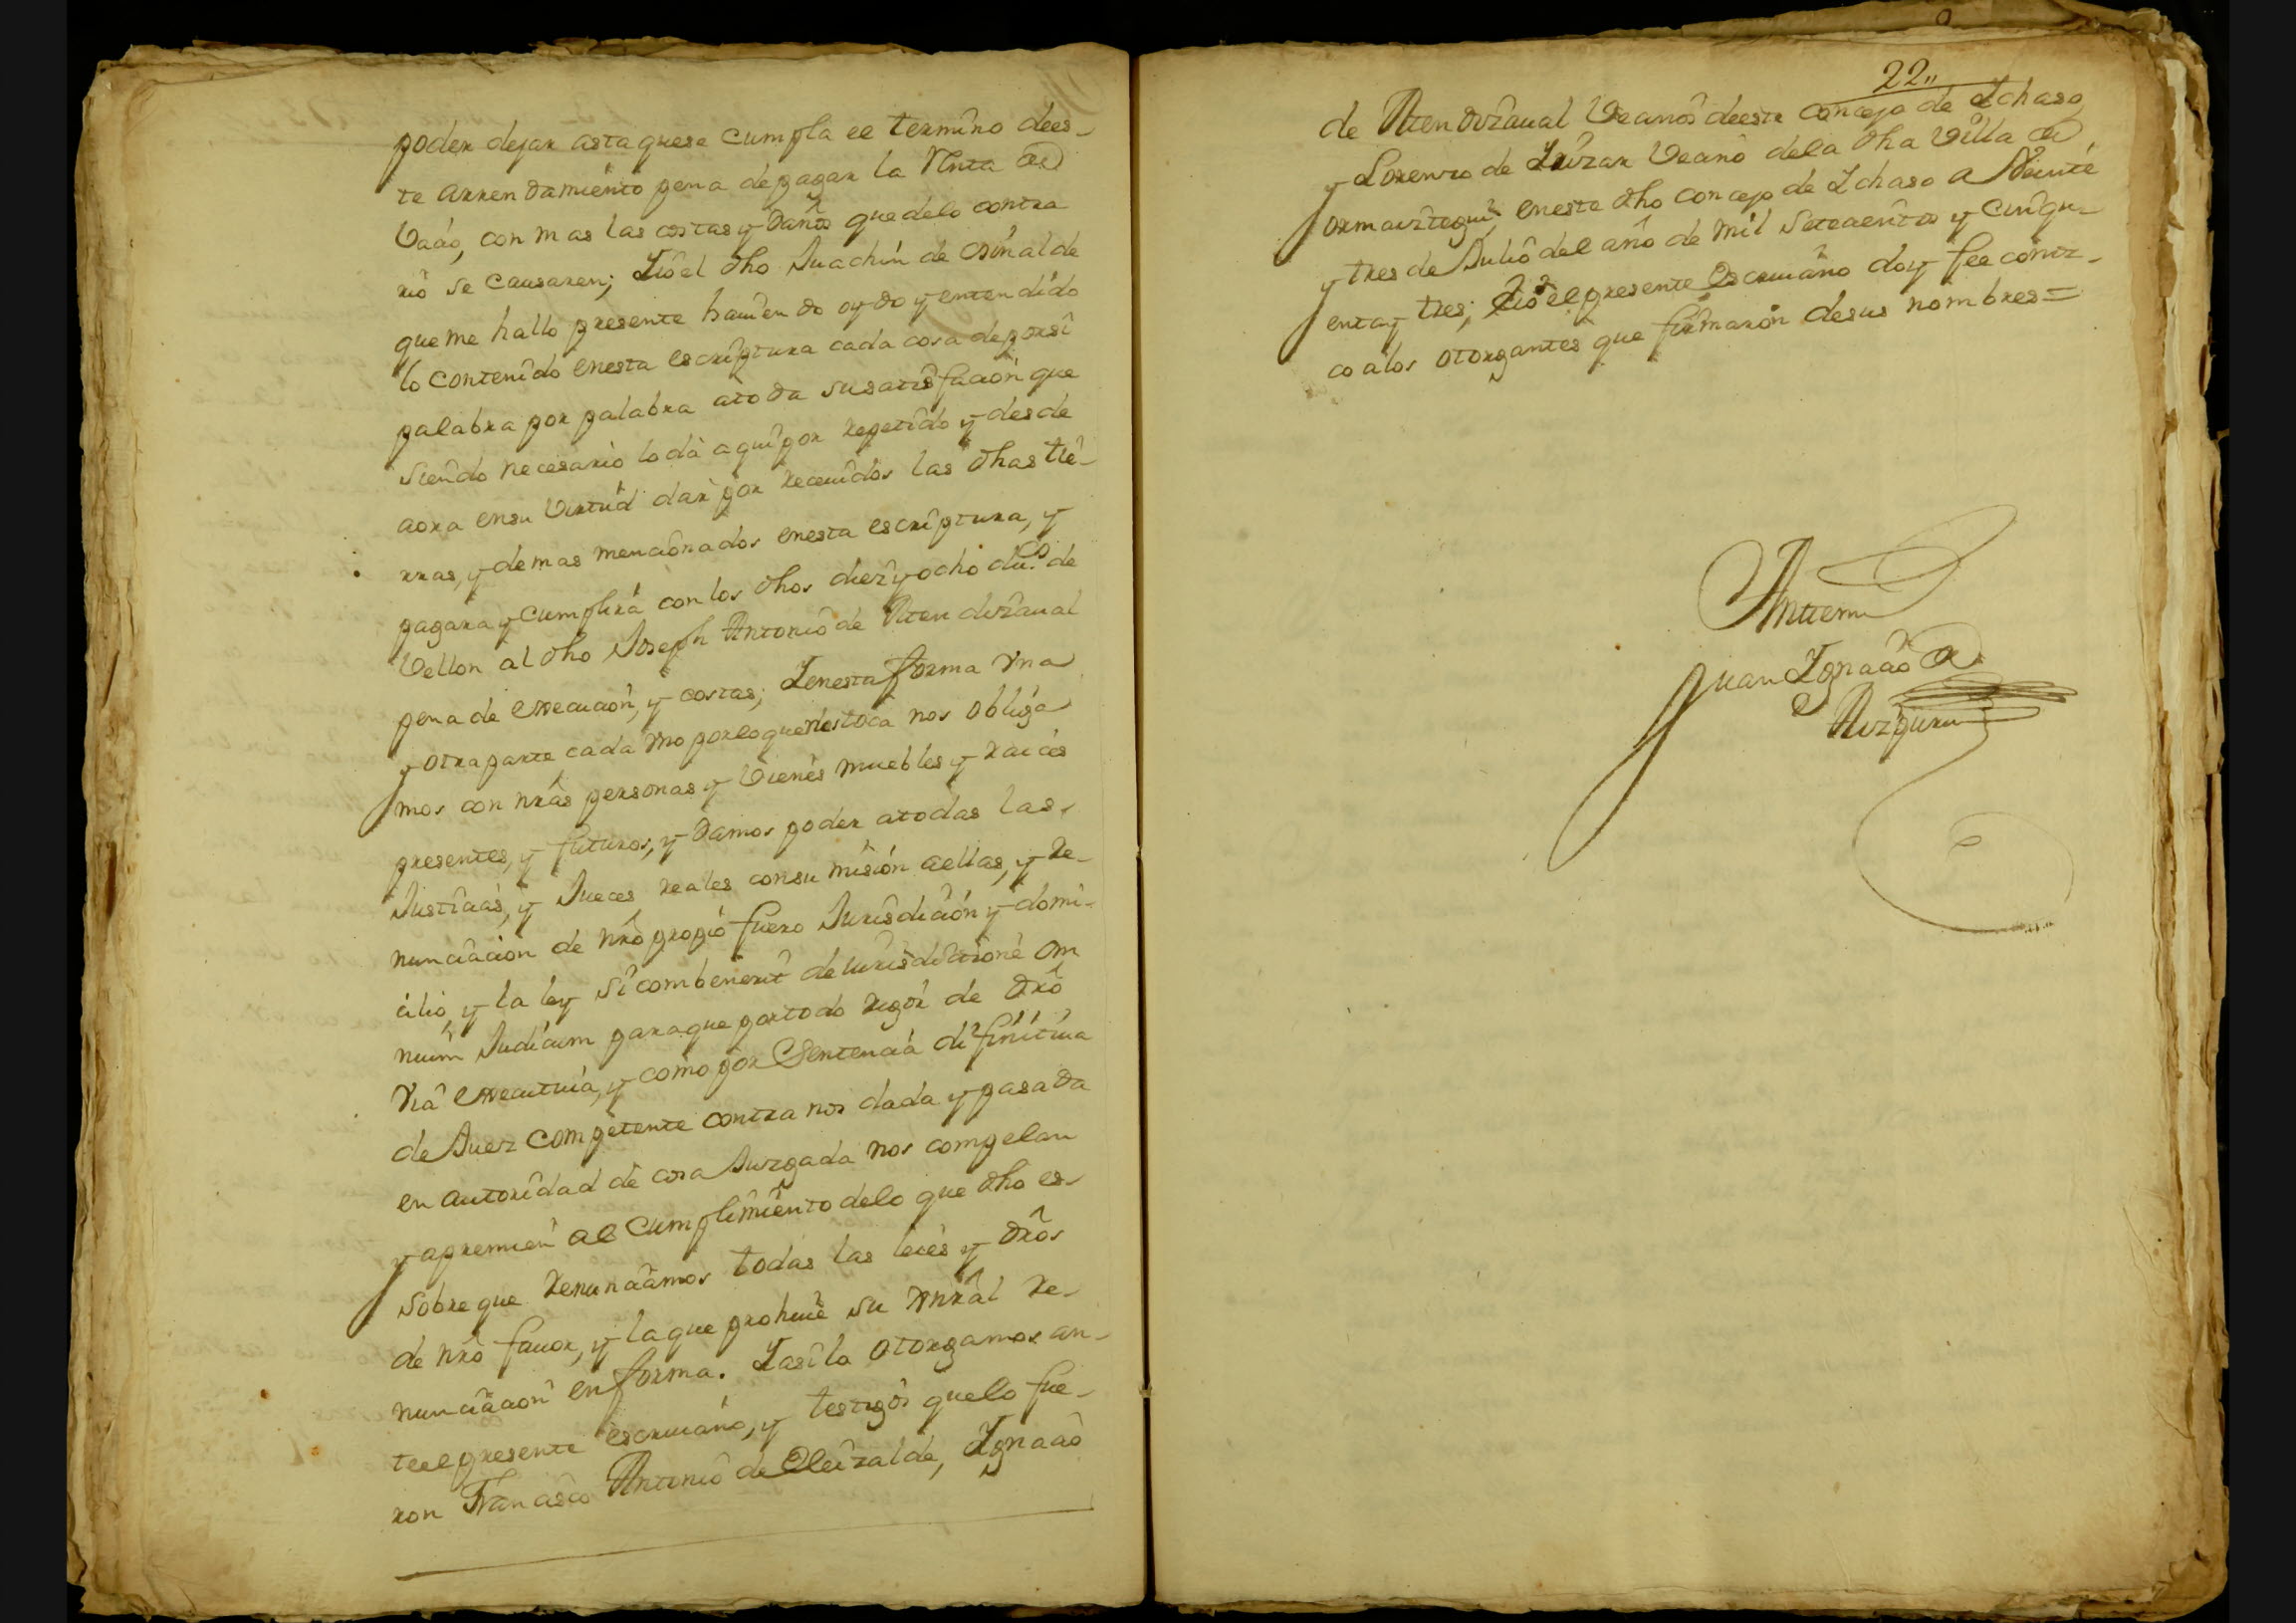 poder dejar asta quese cumpla el termino dees-
te arrendamiento pena de pagar la Renta de
Vacio, con mas las costas y daños quedelo contra
rio se causaren; Yo el dho Juachin de Osinalde
que me hallo presente hauiendo oydo y entendido
lo contenido enesta escriptura cada cosa deporsi
palabra por palabra atoda susatisfacion que
siendo necesario lo dà aqui por repetido y desde
aora ensu Virtud dar por receuidos las dhas tie-
rras, y demas mencionados enesta escriptura, y
pagara y cumplira con los dhos diez y ocho du.s de
Vellon al dho Joseph Antonio de Aten dizaual
pena de execucion, y costas; Y enesta forma Vna
y otra parte cada Vno porlo quenos toca nos obliga
mos con nrâs personas y Vienes muebles y raices
presentes, y futuros, y damos poder atodas las
Justicias, y Jueces reales consu mision aellas, y re-
nunciacion de nrô propio fuero Jurisdicion y domi-
cilio, y la ley si combenerit de iurisditione om
nium Judicum paraque portodo rigor de drô
Via executiua, y como por Sentencia difinitiua
de Juez competente contra nos dada y pasada
en autoridad de cosa Juzgada nos compelan
y apremien al cumplimiento delo que dho es
sobre que renunciamos todas las leies y drôs
de nrô fauor, y laque prohiue su Gnrâl re-
nunciacion en forma. Y asi lo otorgamos an-
te el presente escriuano, y testigos quelo fue-
ron Francisco Antonio de Oleizalde, Ygnacio
22,,
de Aten dizaual Vecinos deeste concejo de Ychaso
y Lorenzo de Luzar Vecino dela dha Villa de
ormaiztegui, eneste dho concejo de Ychaso a Veinte
y tres de Julio del año de mil setecientos y cinqu-
enta y tres; Yo el presente Escriuano doy fee conoz-
co alos otorgantes que firmaron desus nombres =
Antemi
Juan Ygnacio de
Aizpuru